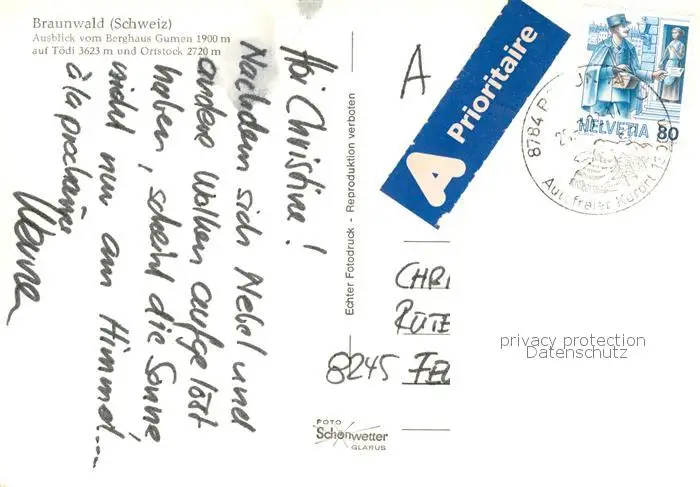 Braunwald (Schweiz)
Ausblick vom Berghaus Gumen 1900 m
auf Tödi 3623 m und Ortstock 2720 m
Hoi Christine!
Nachdem sich Nebel und
andere Wolken aufgelöst
haben, scheint die Sonne
nicht nur am Himmel....
à la prochaine
Echter Fotodruck - Reproduktion verboten
A
A Prioritaire
HELVETIA 80
8784
Autofreier Kurort
CHRI
RÜTE
8245 FEU
privacy protection
Datenschutz
FOTO
Schönwetter
GLARUS